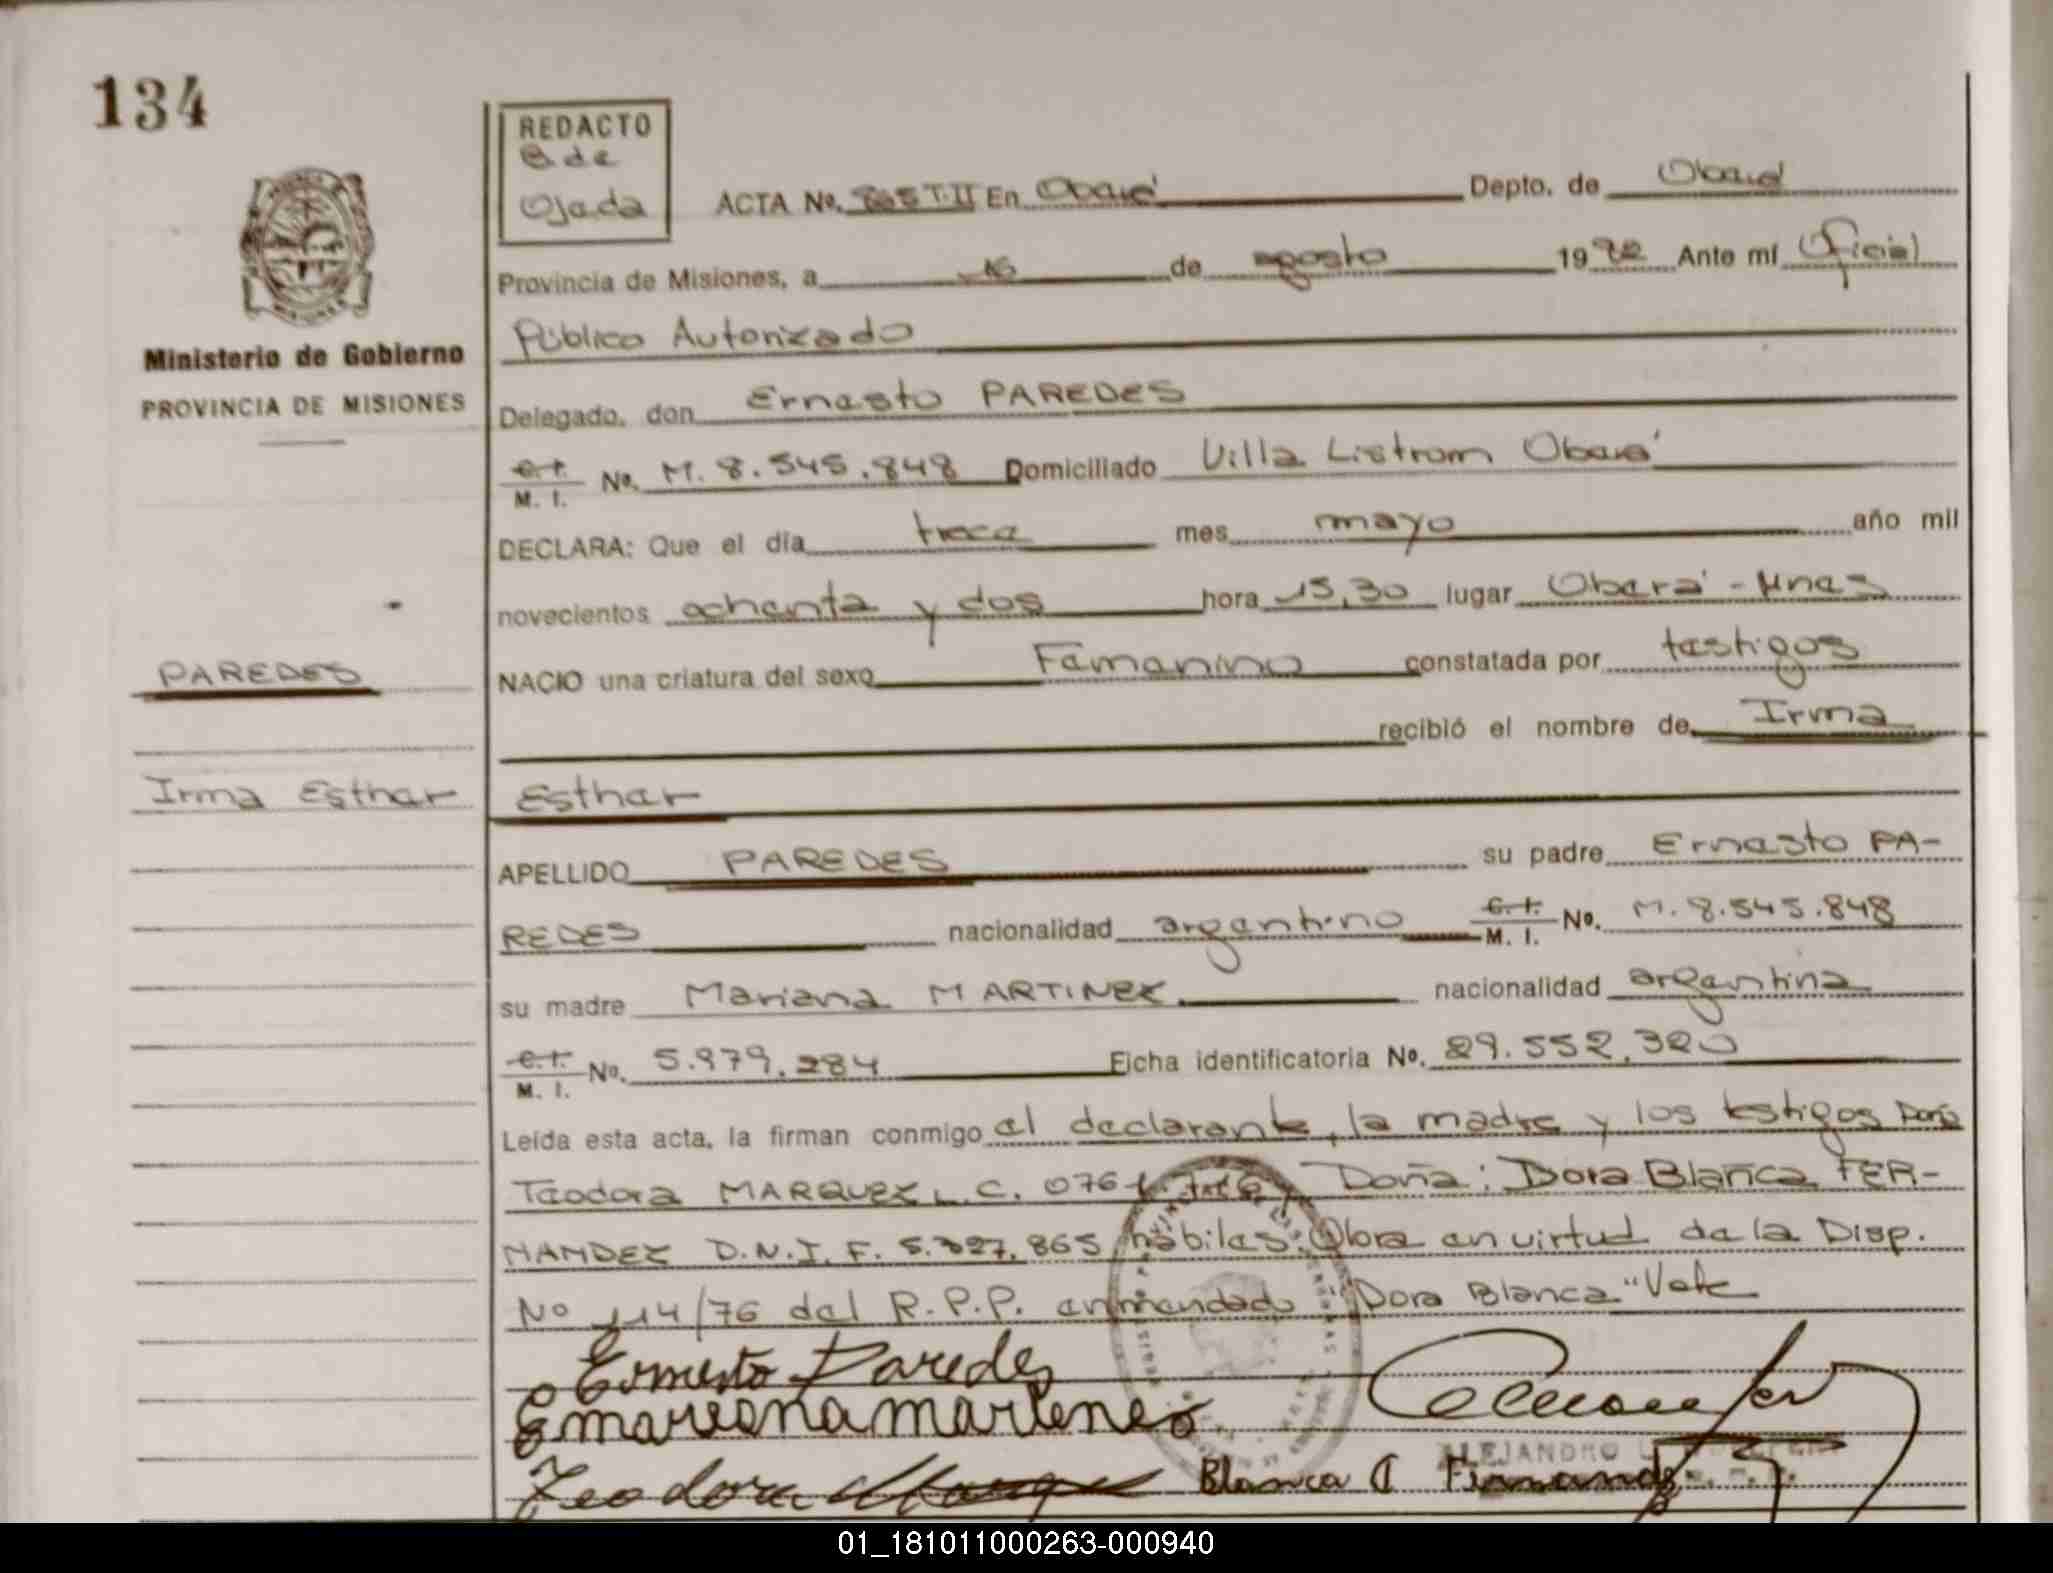 134
REDACTO
B. de
Ojeda
ACTA No. 865 T-II En Oberá Depto. de Oberá
Provincia de Misiones, a 16 de agosto 1982 Ante mí Oficial
Público Autorizado
Ministerio de Gobierno
PROVINCIA DE MISIONES
Delegado, don Ernesto PAREDES
C.I. / M. I. No. M. 8.545.848 Domiciliado Villa Listrom Oberá
DECLARA: Que el día trece mes mayo año mil
novecientos ochenta y dos hora 15,30 lugar Oberá - Mnes
PAREDES
NACIO una criatura del sexo Femenino constatada por testigos
recibió el nombre de Irma
Irma Esther
Esther
APELLIDO PAREDES su padre Ernesto PA-
REDES nacionalidad argentino C.I. / M. I. No. M. 8.545.848
su madre Mariana MARTINEZ nacionalidad argentina
C.I. / M. I. No. 5.979.284 Ficha identificatoria No. 29.552.320
Leída esta acta, la firman conmigo el declarante, la madre y los testigos Doña
Teodora MARQUEZ L.C. Doña: Dora Blanca FER-
NANDEZ D.N.I. F. 5.327.865 hábiles. Obra en virtud de la Disp.
No 114/76 del R.P.P. enmendado "Dora Blanca" Vale
Ernesto Paredes
Emareona martenes
Teodora Marque Blanca D Fernandez
ALEJANDRO
01_181011000263-000940